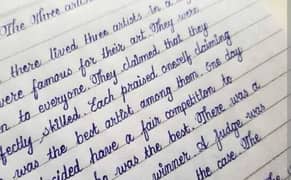 The three arti
there lived three artists in a
were famous for their art They were
n to everyone. They claimed that they
fectly skilled. Each praised oneself claiming
was the best artist among them. One day
cided have a fair competition to
he was the best. There was a
winner A judge was
the case. The